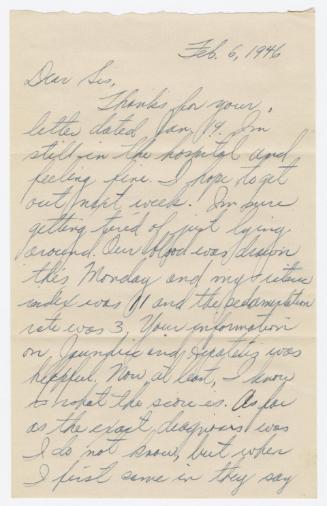 Feb. 6, 1946
Dear Sis,
Thanks for your
letter dated Jan 19. I'm
still in the hospital and
feeling fine. I hope to get
out next week. I'm sure
getting tired of just lying
around. Our blood was drawn
this Monday and my icterus
index was 11 and the sedimentation
rate was 3. Your information
on Jaundice and Hepatitis was
helpful. Now at least, I know
what the score is. As far
as the exact diagnosis was
I do not know, but when
I first came in they say